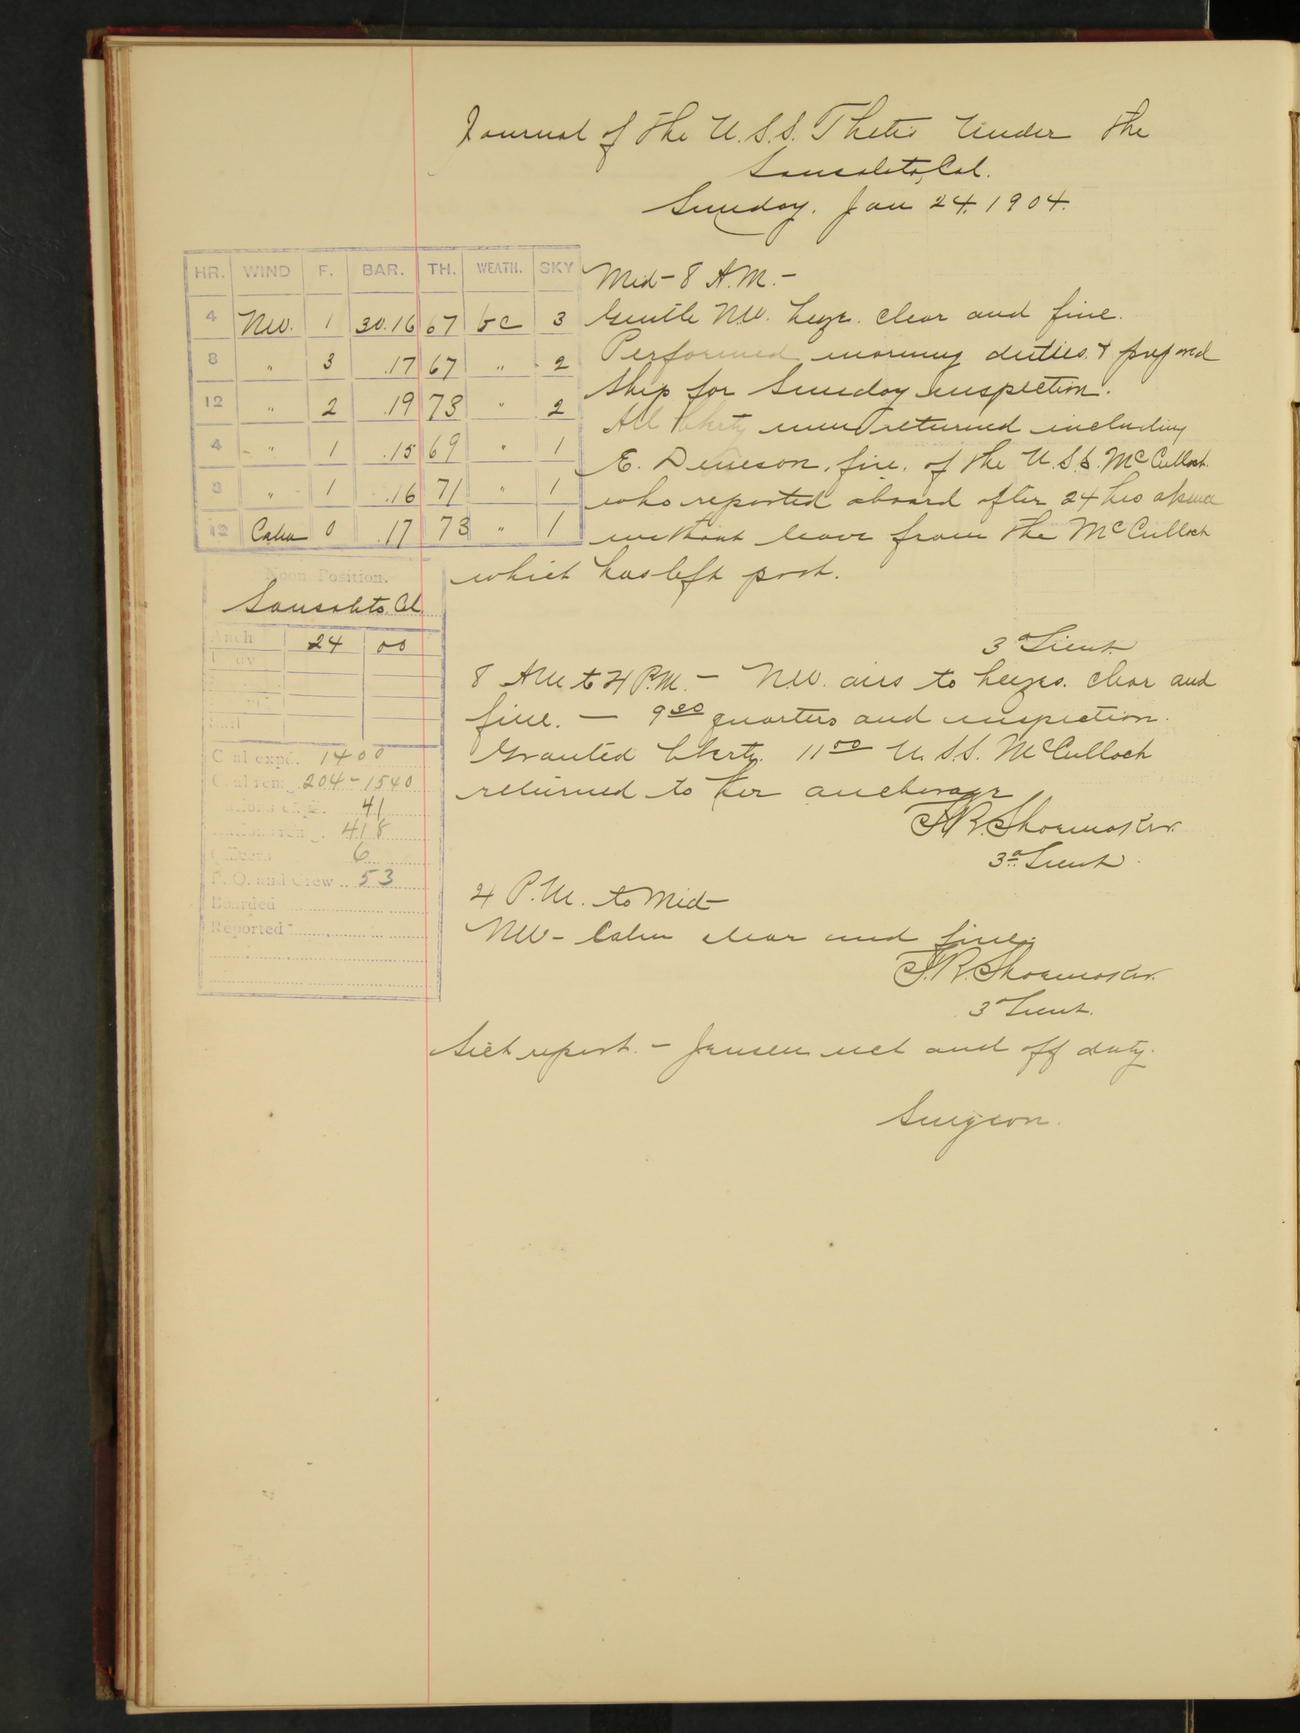 Journal of the U.S.S. Thetis Under the
Sausalito, Cal.
Sunday. Jan 24. 1904.
HR. WIND F. BAR. TH. WEATH. SKY
4 NW. 1 30.16 67 bc 3
8 " 3 .17 67 " 2
12 " 2 .19 73 " 2
4 " 1 .15 69 " 1
8 " 1 .16 71 " 1
12 Calm 0 .17 73 " 1
Noon Position.
Sausalito, Cal
Anch 24 00
Coal expd. 1400
Coal rem. 204-1540
41
418
Officers 6
P. O. and Crew .. 53
Boarded
Reported
Mid - 8 A.M. -
Gentle NW. breeze. clear and fine.
Performed morning duties. & prepared
ship for Sunday inspection.
All liberty men returned including
E. Deneson, fire. of the U.S.S. McCulloch.
who reported aboard after 24 hrs absence
without leave from the McCulloch
which has left port.
3d Lieut.
8 AM to 4 P.M. - N.W. airs to breezes. clear and
fine. - 9 30 quarters and inspection.
Granted liberty. 11 00 U.S.S. McCulloch
returned to her anchorage
F.R. Shoemaker.
3d Lieut.
4 P.M. to Mid-
NW - Calm clear and fine.
F.R. Shoemaker.
3d Lieut.
Sick report. - Jensen and off duty.
Surgeon.